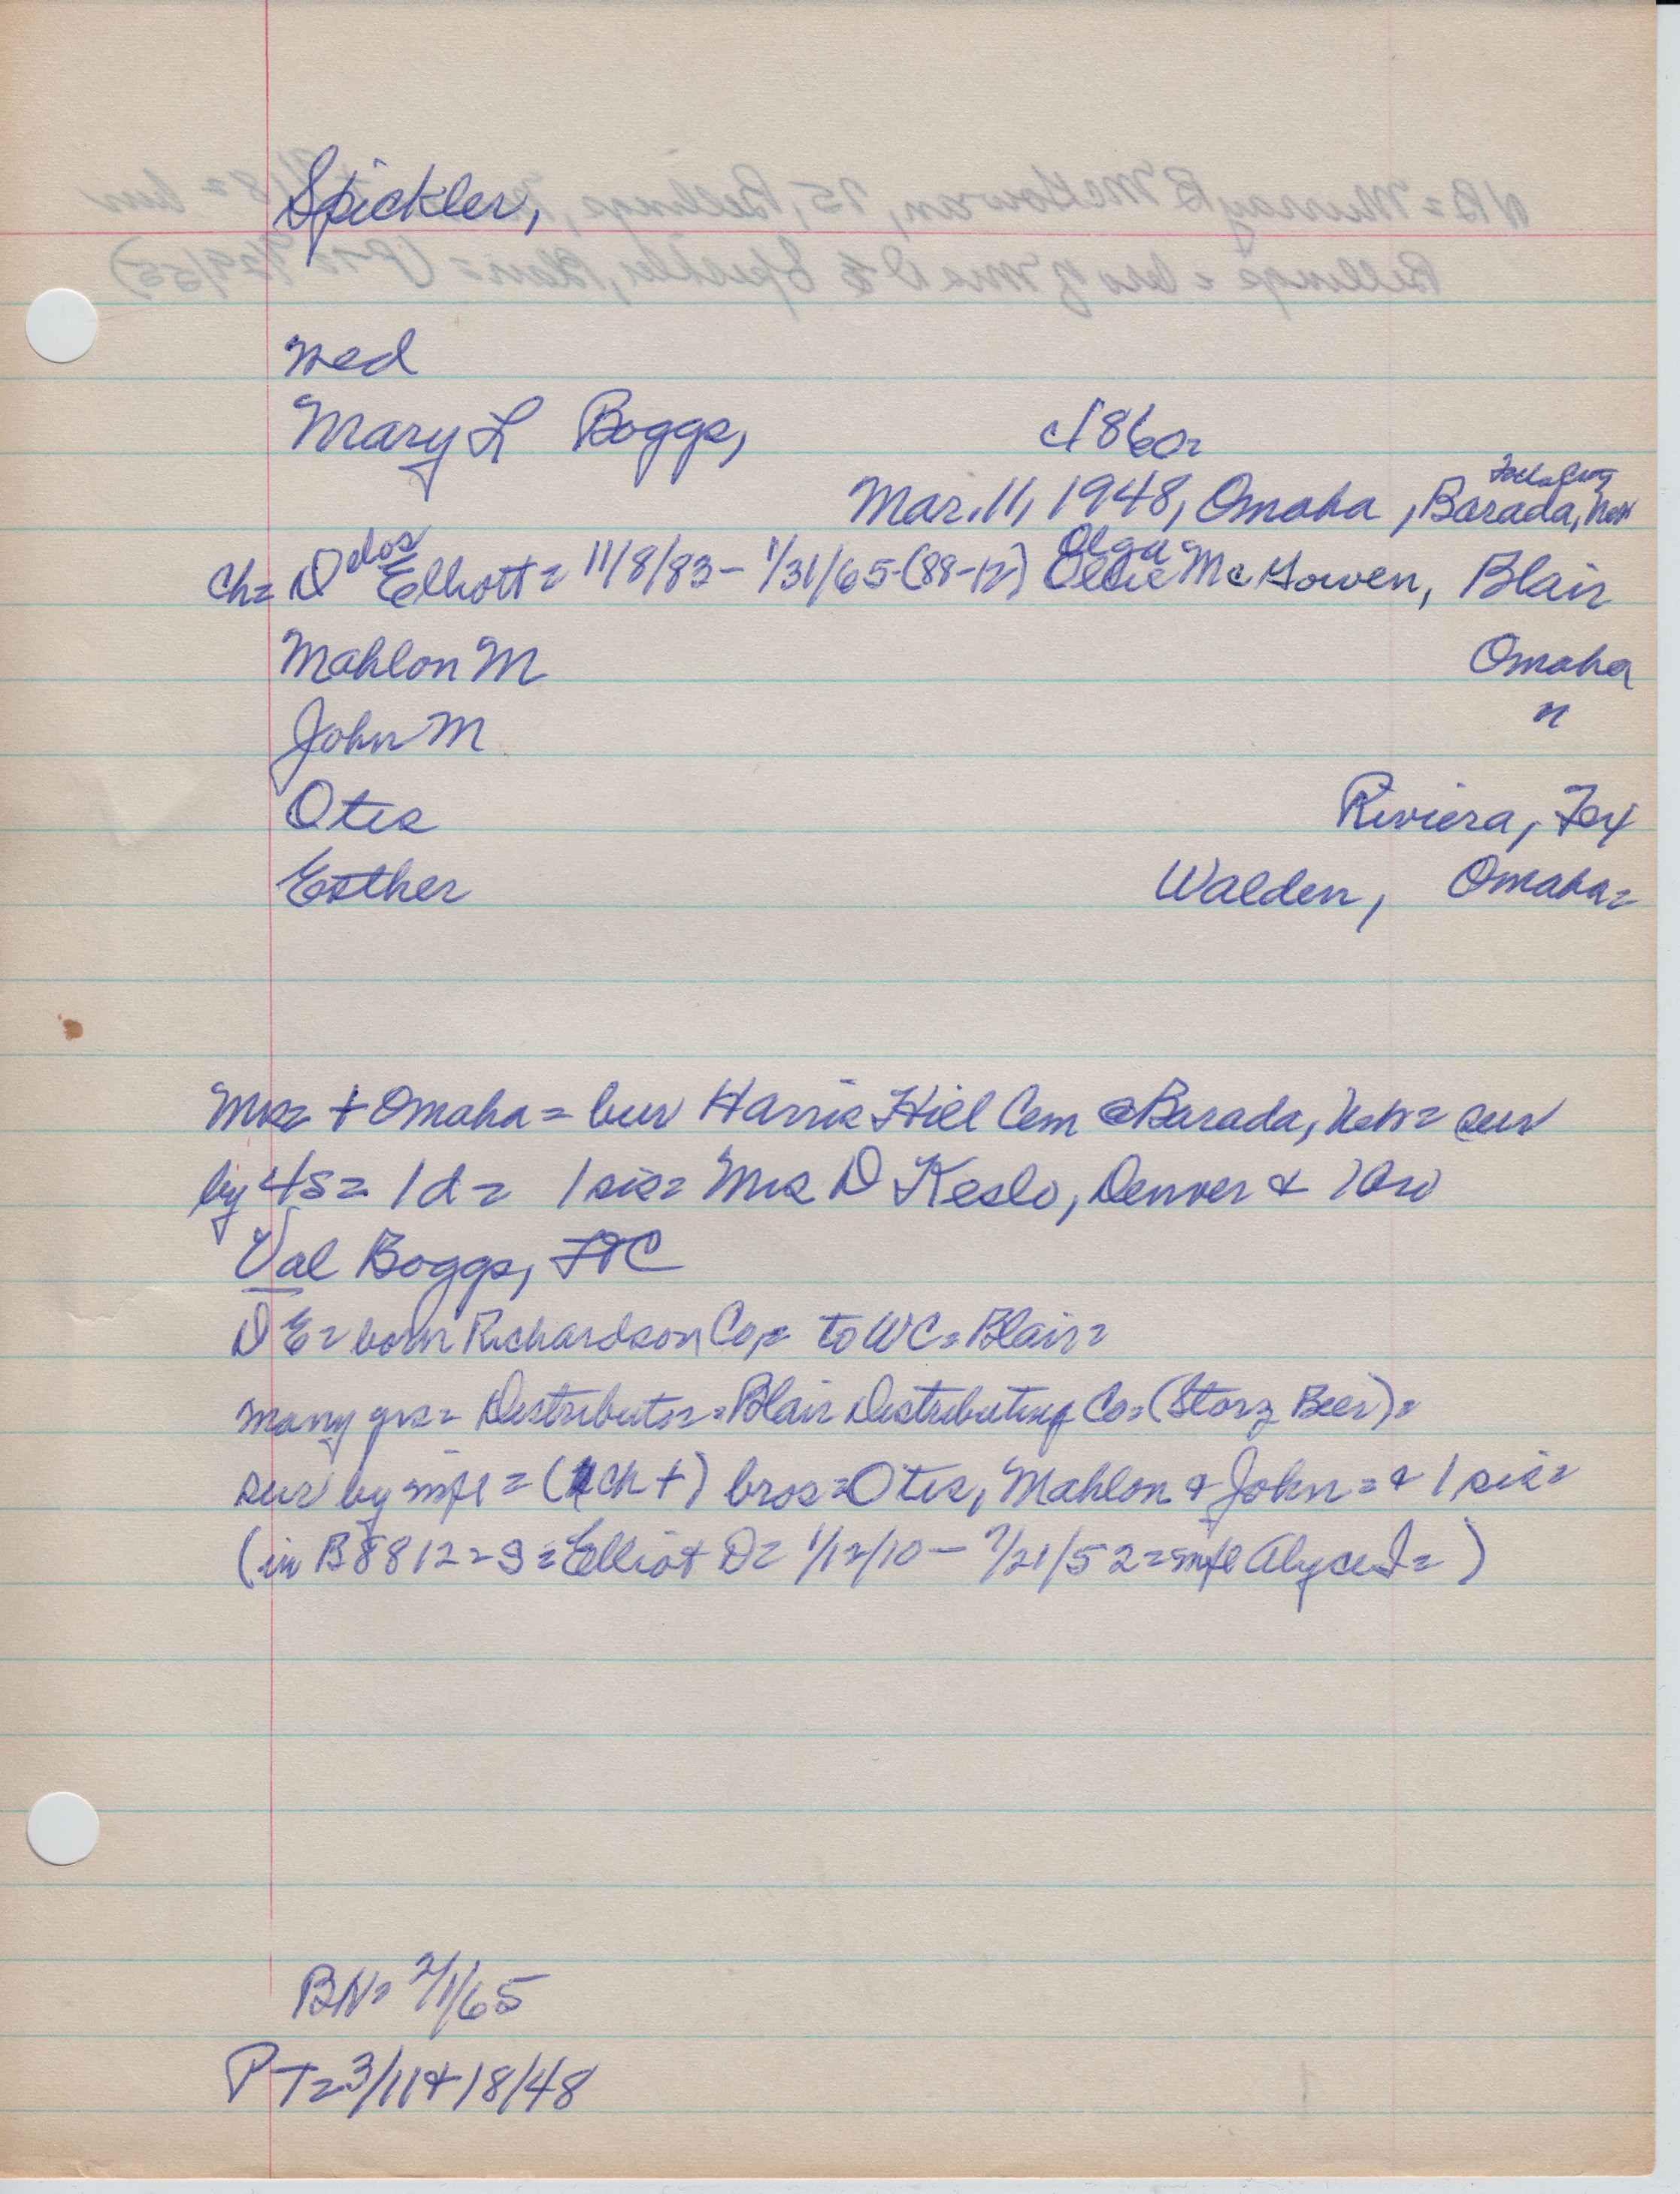 Spickler,
med
Mary L Boggs, c1860=
Mar. 11, 1948, Omaha, Barada, Neb
Ch= D Elliott= 11/8/83- 1/31/65-(88-12) Olga McGowen, Blair
Mahlon M Omaha
John M "
Otis Riviera, Tex
Esther Walden, Omaha=
Mrs= + Omaha= bur Harris Hill Cem @ Barada, Neb= sur
by 4s= 1d= 1 sis= Mrs D Keslo, Denver & 1 bro
Val Boggs,
D E= born Richardson Co,= to WC= Blair=
many yrs= Distributor= Blair Distributing Co= (Storz Beer)=
sur by wife= (1 ch +) bros= Otis, Mahlon & John= & 1 sis=
(in B8812= S= Elliot D= 1/12/10 - 7/21/52= wife Alyce I= )
BN= 2/1/65
PT= 3/11 & 18/48